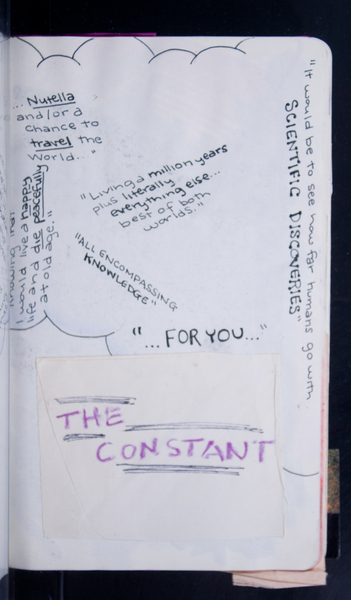 ... Nutella
and/or a
chance to
travel the
world..."
knowing that
I would live a happy
life and die peacefully
at old age."
"Living a million years
plus literally
everything else...
best of both
worlds."
"ALL ENCOMPASSING
KNOWLEDGE"
"It would be to see how far humans go with
SCIENTIFIC DISCOVERIES"
"... FOR YOU..."
THE
CONSTANT